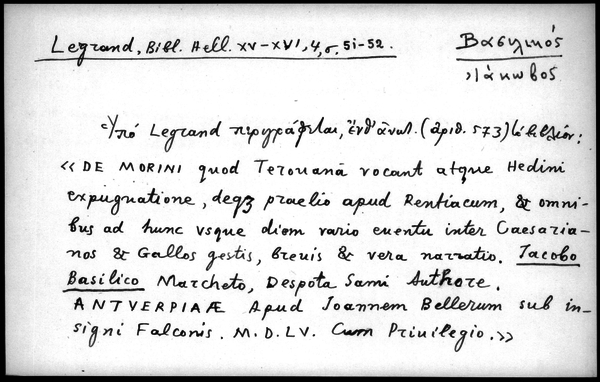 Legrand, Bibl. Hell. XV-XVI, 4, σ. 51-52.
Βασιλικός
Ἰάκωβος
Ὑπό Legrand περιγράφεται, ἔνθ' ἀνωτ. (ἀριθ. 573) τὸ βιβλίον:
« DE MORINI quod Terouanā vocant atque Hedini
expugnatione, deqȝ praelio apud Rentiacum, & omni-
bus ad hunc vsque diem vario euentu inter Caesaria-
nos & Gallos gestis, breuis & vera narratio. Iacobo
Basilico Marcheto, Despota Sami Authore.
ANTVERPIAÆ Apud Ioannem Bellerum sub in-
signi Falconis. M.D.LV. Cum Priuilegio.»